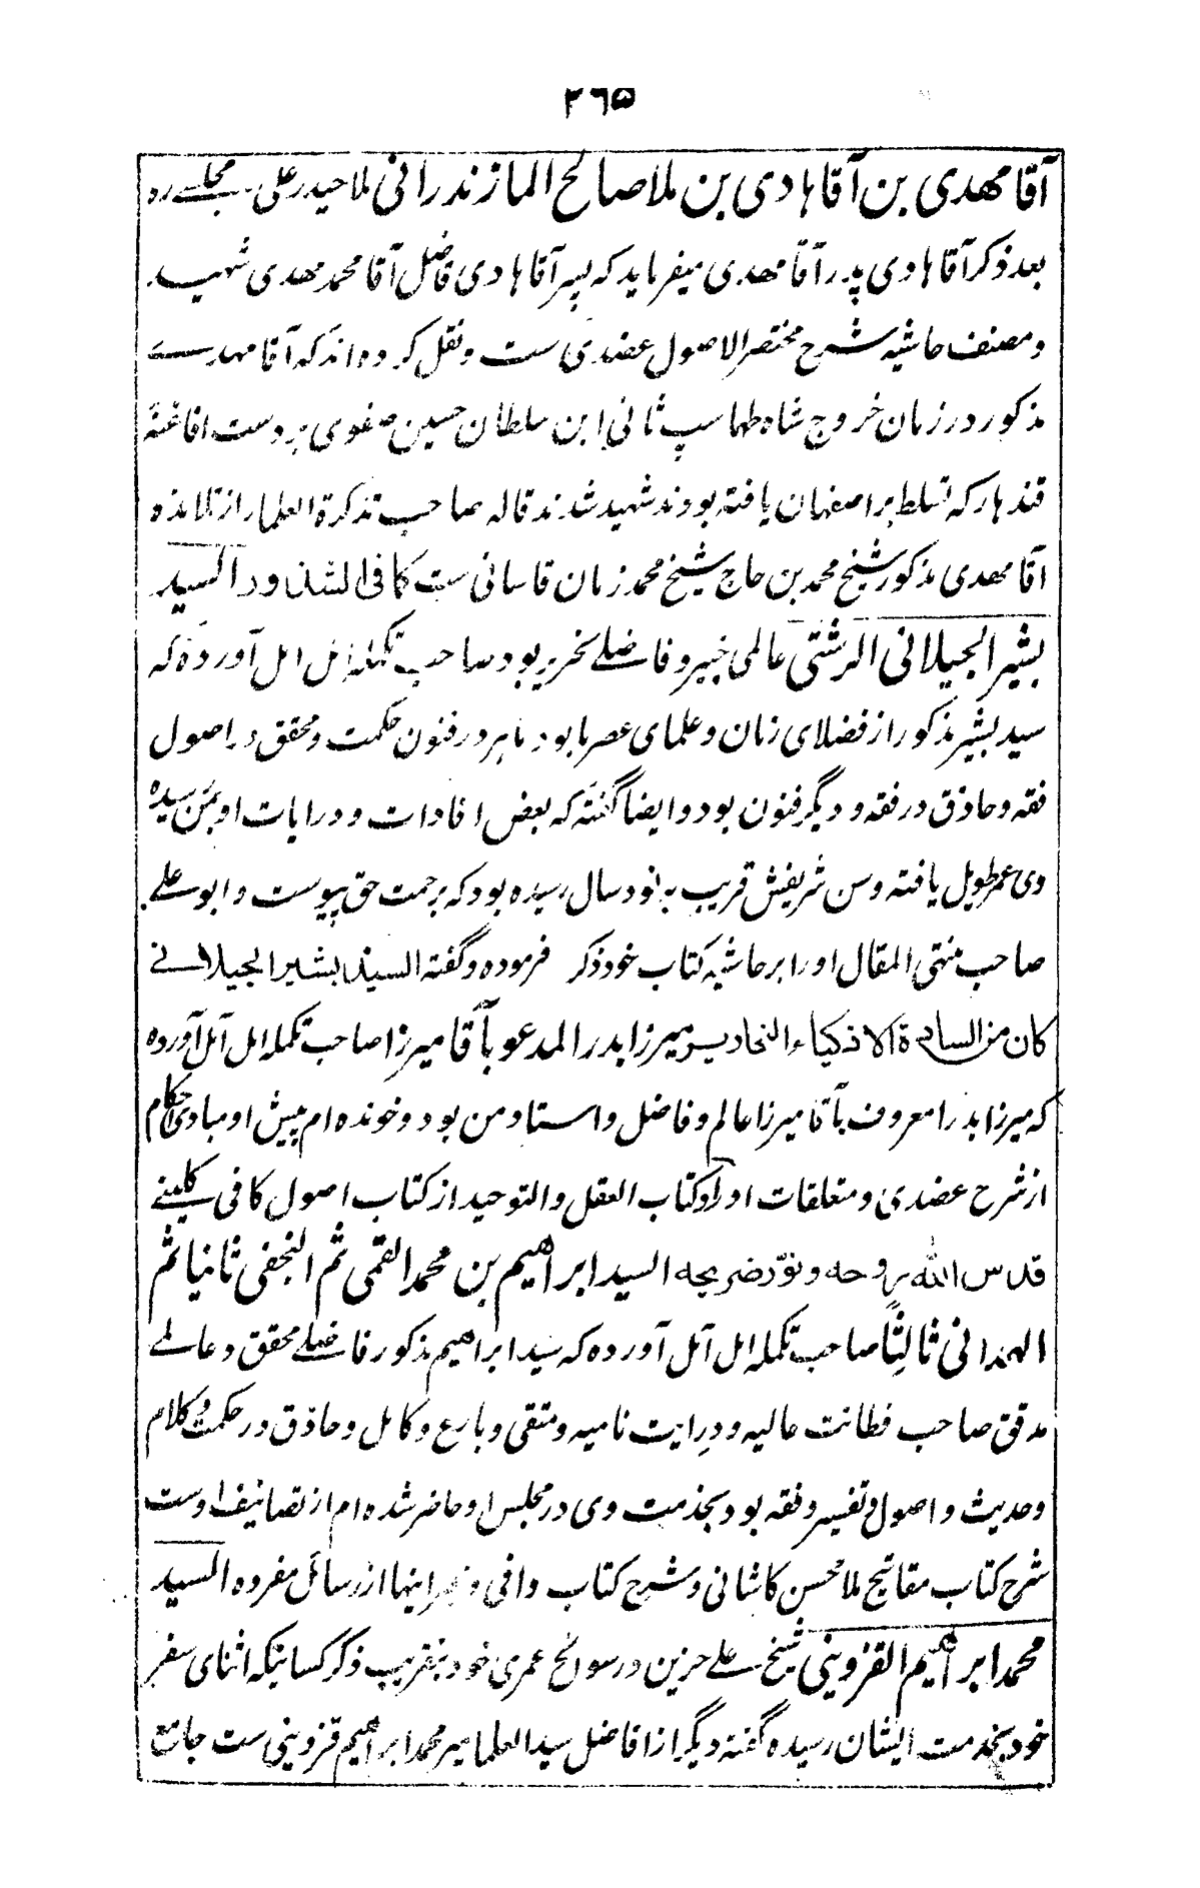 ۲۶۵
آقا مهدی بن آقا هادی بن ملا صالح المازندرانی ملا حیدر علی مجلسے ره
بعد ذکر آقا هادی پدر آقا مهدی میفرماید که پسر آقا هادی فاضل آقا محمد مهدی شهید
و مصنف حاشیه شرح مختصر الاصول عضدی ست و نقل کرده اند که آقا مهدے
مذکور در زمان خروج شاه طهماسپ ثانی ابن سلطان حسین صفوی بر دست افاغنهٔ
قندهار که تسلط بر اصفهان یافته بودند شهید شدند قاله صاحب تذکرة العلما و از تلامذه
آقا مهدی مذکور شیخ محمد بن حاج شیخ محمد زمان قاسانی ست کما فی الشذور السید
بشیر الجیلانی الرشتی عالمی خبیر و فاضلے نحریر بود صاحب تکمله امل امل آورده که
سید بشیر مذکور از فضلای زمان و علمای عصر ما بود ماهر در فنون حکمت و محقق در اصول
فقه و حاذق در فقه و دیگر فنون بود و ایضا گفته که بعض افادات و درایات او بمن رسیده
وی عمر طویل یافته و سن شریفش قریب به نود سال رسیده بود که برحمت حق پیوست و ابو علے
صاحب منتهی المقال او را بر حاشیه کتاب خود ذکر فرموده و گفته السید بشیر الجیلانے
کان من السادة الاذکیاء النحاریر میرزا بدرا لمدعو بآقا میرزا صاحب تکمله امل آمل آورده
که میرزا بدرا معروف بآقا میرزا عالم و فاضل و استاد من بود و خوانده ام پیش او مبادی احکام
از شرح عضدی و متعلقات او را و کتاب العقل و التوحید از کتاب اصول کافی کلینے
قدس الله روحه و نوّر ضریحه السید ابراهیم بن محمد القمی ثم النجفی ثانیا ثم
الهمدانی ثالثاً صاحب تکمله امل آمل آورده که سید ابراهیم مذکور فاضلے محقق و عالمے
مدقق صاحب فطانت عالیه و درایت نامیه و متقی و بارع و کامل و حاذق در حکمت و کلام
و حدیث و اصول و تفسیر و فقه بود بخدمت وی در مجلس او حاضر شده ام از تصانیف اوست
شرح کتاب مفاتیح ملا محسن کاشانی و شرح کتاب وافی و غیر اینها از رسائل مفرده السید
محمد ابراهیم القزوینی شیخ علے حزین در سوانح عمری خود بتقریب ذکر کسانیکه اثنای سفر
خود بخدمت ایشان رسیده گفته دیگر از افاضل سید العلما میر محمد ابراهیم قزوینی ست جامع